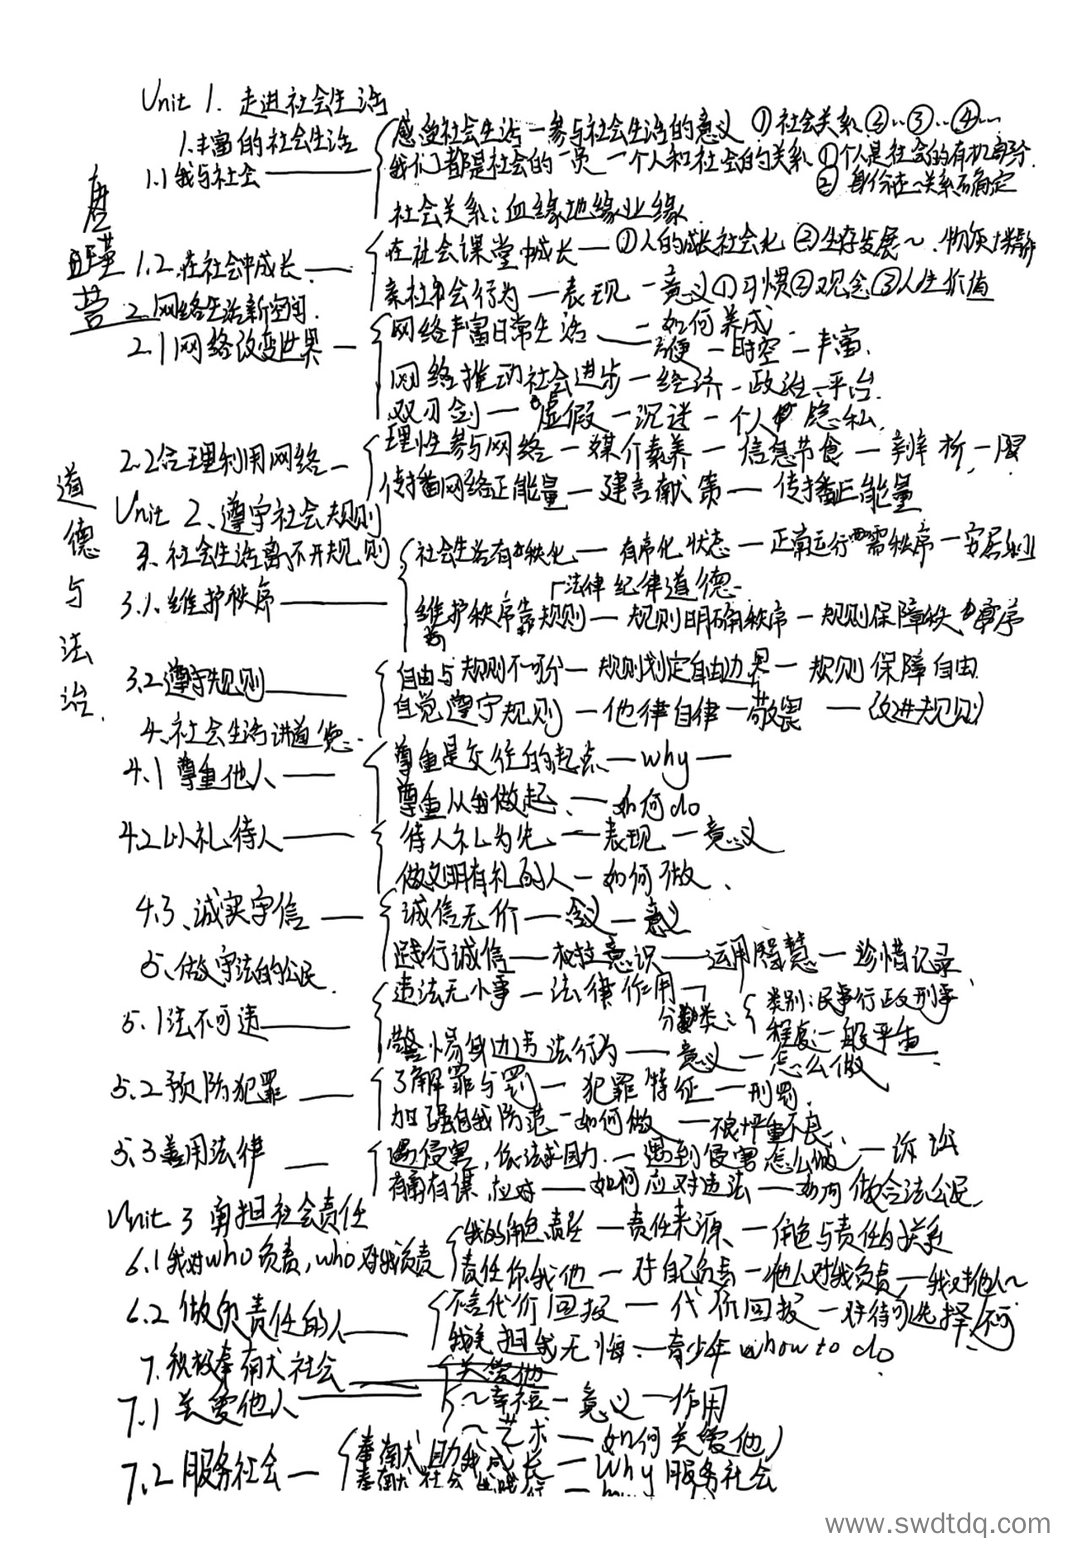 Unit 1. 走进社会生活
1.丰富的社会生活
感受社会生活一参与社会生活的意义 ①社会关系 ②..③..④...
1.1我与社会
我们都是社会的一员 一个人和社会的关系 ①个人是社会的有机部分.
② 身份在~关系不确定
社会关系:血缘地缘业缘
1.2.在社会中成长
在社会课堂中成长—①人的成长社会化 ②生存发展~.物质 精神
亲社会行为—表现一意义①习惯②观念③人生价值
一如何养成
2.网络生活新空间.
2.1网络改变世界
网络丰富日常生活—方便一时空一丰富.
网络推动社会进步一经济一政治一平台.
双刃剑—虚假一沉迷一个人隐私.
2.2合理利用网络
理性参与网络—媒介素养—信息节食—辨析一限
传播网络正能量—建言献策—传播正能量
Unit 2、遵守社会规则
3.社会生活离不开规则
3.1.维护秩序
社会生活有秩化—有序化状态—正常运行需秩序—安居乐业
法律 纪律道德
维护秩序靠规则—规则明确秩序—规则保障秩序
3.2遵守规则
自由与规则不可分—规则划定自由边界—规则保障自由
自觉遵守规则—他律自律—敬畏—改进规则
4.社会生活讲道德
4.1尊重他人
尊重是交往的起点—why—
尊重从我做起.—如何do
4.2以礼待人
待人礼为先—表现—意义
做文明有礼的人—如何做、
4.3、诚实守信
诚信无价—含义—意义
践行诚信—树立意识—运用智慧—珍惜记录
5、做守法的公民
5.1法不可违
违法无小事—法律作用
分类: 类别:民事行政刑事
程度:一般严重
警惕身边违法行为—意义—怎么做
5.2预防犯罪
了解罪与罚—犯罪特征—刑罚.
加强自我防范—如何做—杜绝不良
5.3善用法律
遇侵害,依法求助.—遇到侵害怎么做—诉讼
有勇有谋 应对—如何应对违法—如何做合法公民
Unit 3 勇担社会责任
6.1我对who负责,who对我负责
我的角色责任—责任来源—角色与责任的关系
责任你我他—对自己负责—他人对我负责—我对他人~
6.2做负责任的人
不言代价回报—代价回报—对待可选择不可
我承担我无悔.—青少年 how to do
7.积极奉献社会
关爱他
7.1关爱他人
~幸福—意义—作用
~艺术—如何关爱他人
7.2服务社会
奉献 助我成长—Why服务社会
奉献社会 践行—
唐瑾营
道德与法治.
www.swdtdq.com